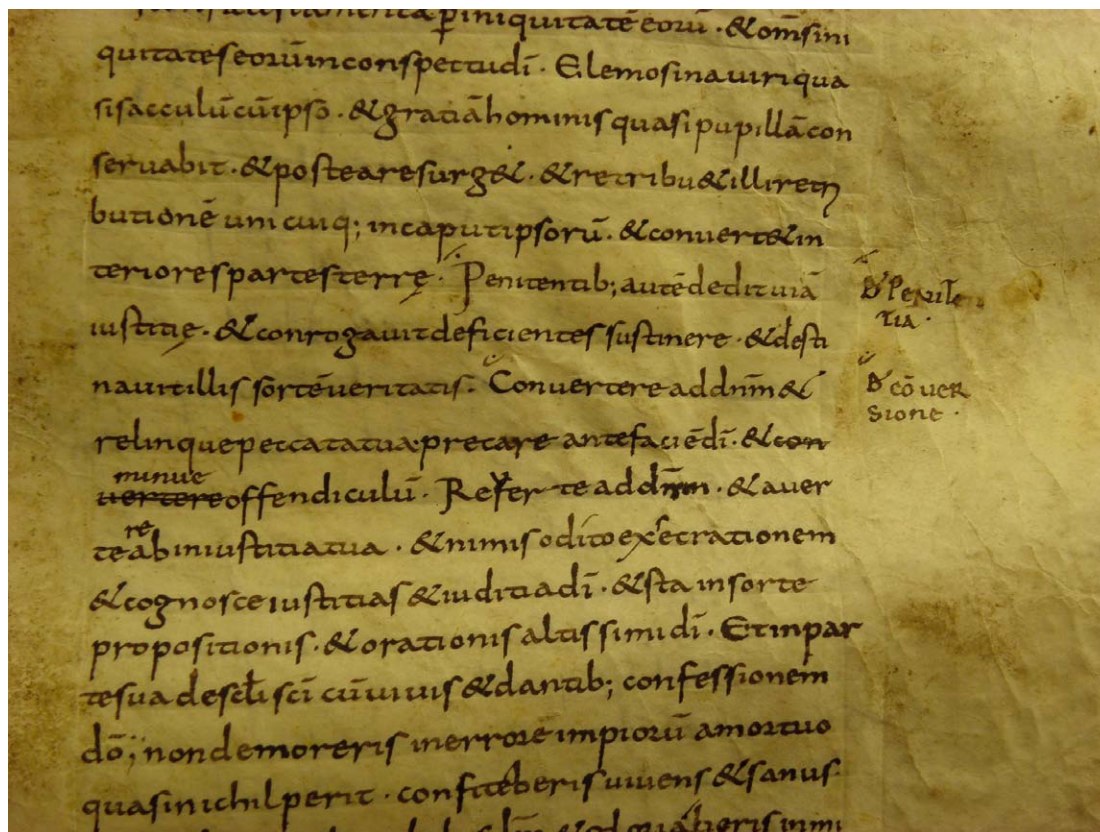 testamenta p̱ iniquitatē eorū · & om̄s ini
quitates eorū in conspectu dī · Elemosina uiri qua
si sacculū cū ipso · & gratiā hominis quasi pupillā con
seruabit · & postea resurg& · & retribu& illi retri
butionē unicuiq; in caput ipsorū · & conuert& in
teriores partes terrę · Penitentib; autē dedit uiā
iustitię · & conrogauit deficientes sustinere · & desti
nauit illis sortē ueritatis · Conuertere ad dn̄m &
relinque peccata tua precare ante faciē dī · & con
minue
uertere offendiculū · Reuertere ad dn̄m · & auer
re
te ab iniustitia tua · & nimis odito execrationem
& cognosce iustitias & iuditia dī · & sta in sorte
propositionis · & orationis altissimi dī · Et in par
te sua descłi sc̄i cū uiuis & dantib; confessionem
dō; non demoreris in errore impiorū a mortuo
quasi nichil perit · confiteberis uiuens & sanus
đ penite
tia ·
đ cōuer
sione ·